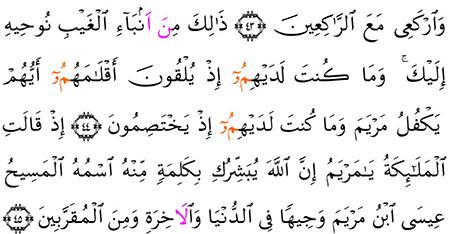 وَٱرْكَعِى مَعَ ٱلرَّٰكِعِينَ ۝٤٣ ذَٰلِكَ مِنَ اَنۢبَآءِ ٱلْغَيْبِ نُوحِيهِ
إِلَيْكَ ۚ وَمَا كُنتَ لَدَيْهِمُۥٓ إِذْ يُلْقُونَ أَقْلَٰمَهُمُۥٓ أَيُّهُمْ
يَكْفُلُ مَرْيَمَ وَمَا كُنتَ لَدَيْهِمُۥٓ إِذْ يَخْتَصِمُونَ ۝٤٤ إِذْ قَالَتِ
ٱلْمَلَٰٓئِكَةُ يَٰمَرْيَمُ إِنَّ ٱللَّهَ يُبَشِّرُكِ بِكَلِمَةٍ مِّنْهُ ٱسْمُهُ ٱلْمَسِيحُ
عِيسَى ٱبْنُ مَرْيَمَ وَجِيهًا فِى ٱلدُّنْيَا وَٱلَاخِرَةِ وَمِنَ ٱلْمُقَرَّبِينَ ۝٤٥